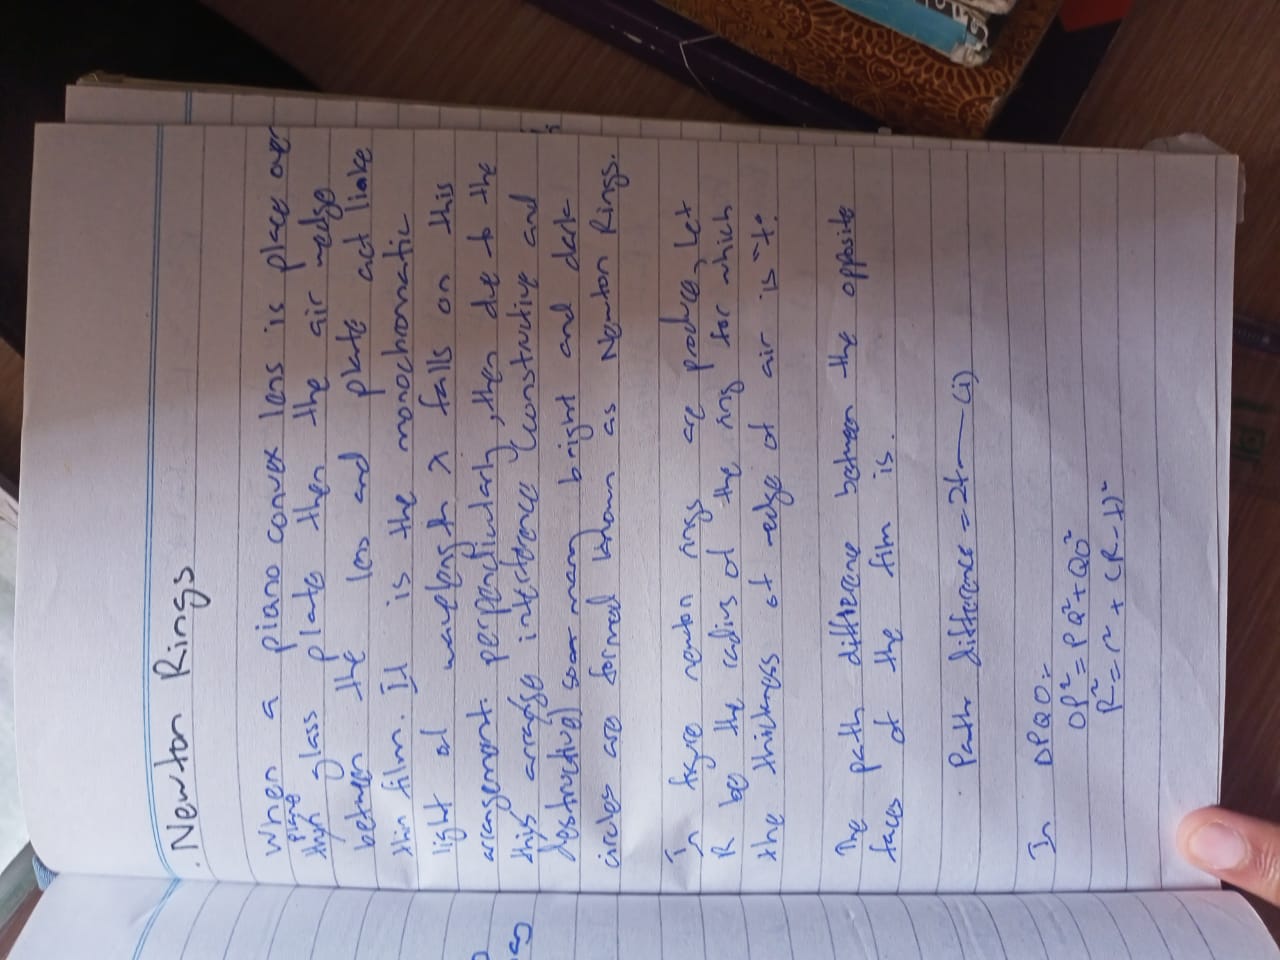 . Newton Rings
When a piano convex lens is place over
plane
thin glass plate then the air wedge
between the lens and plate act liake
thin film. If is the monochromatic
light of wavelength λ falls on this
arrangement. perpendicularly, then due to the
this interference (constructive and
destructive) many bright and dark
circles are formed known as Newton Rings.
In figure newton rings are produce, Let
R be the radius of the ring for which
the thickness of wedge of air is "t".
The path difference between the opposite
faces of the film is.
Path difference = 2t — (i)
In ΔPQO:-
OP² = PQ² + QO²
R² = r² + (R-t)²